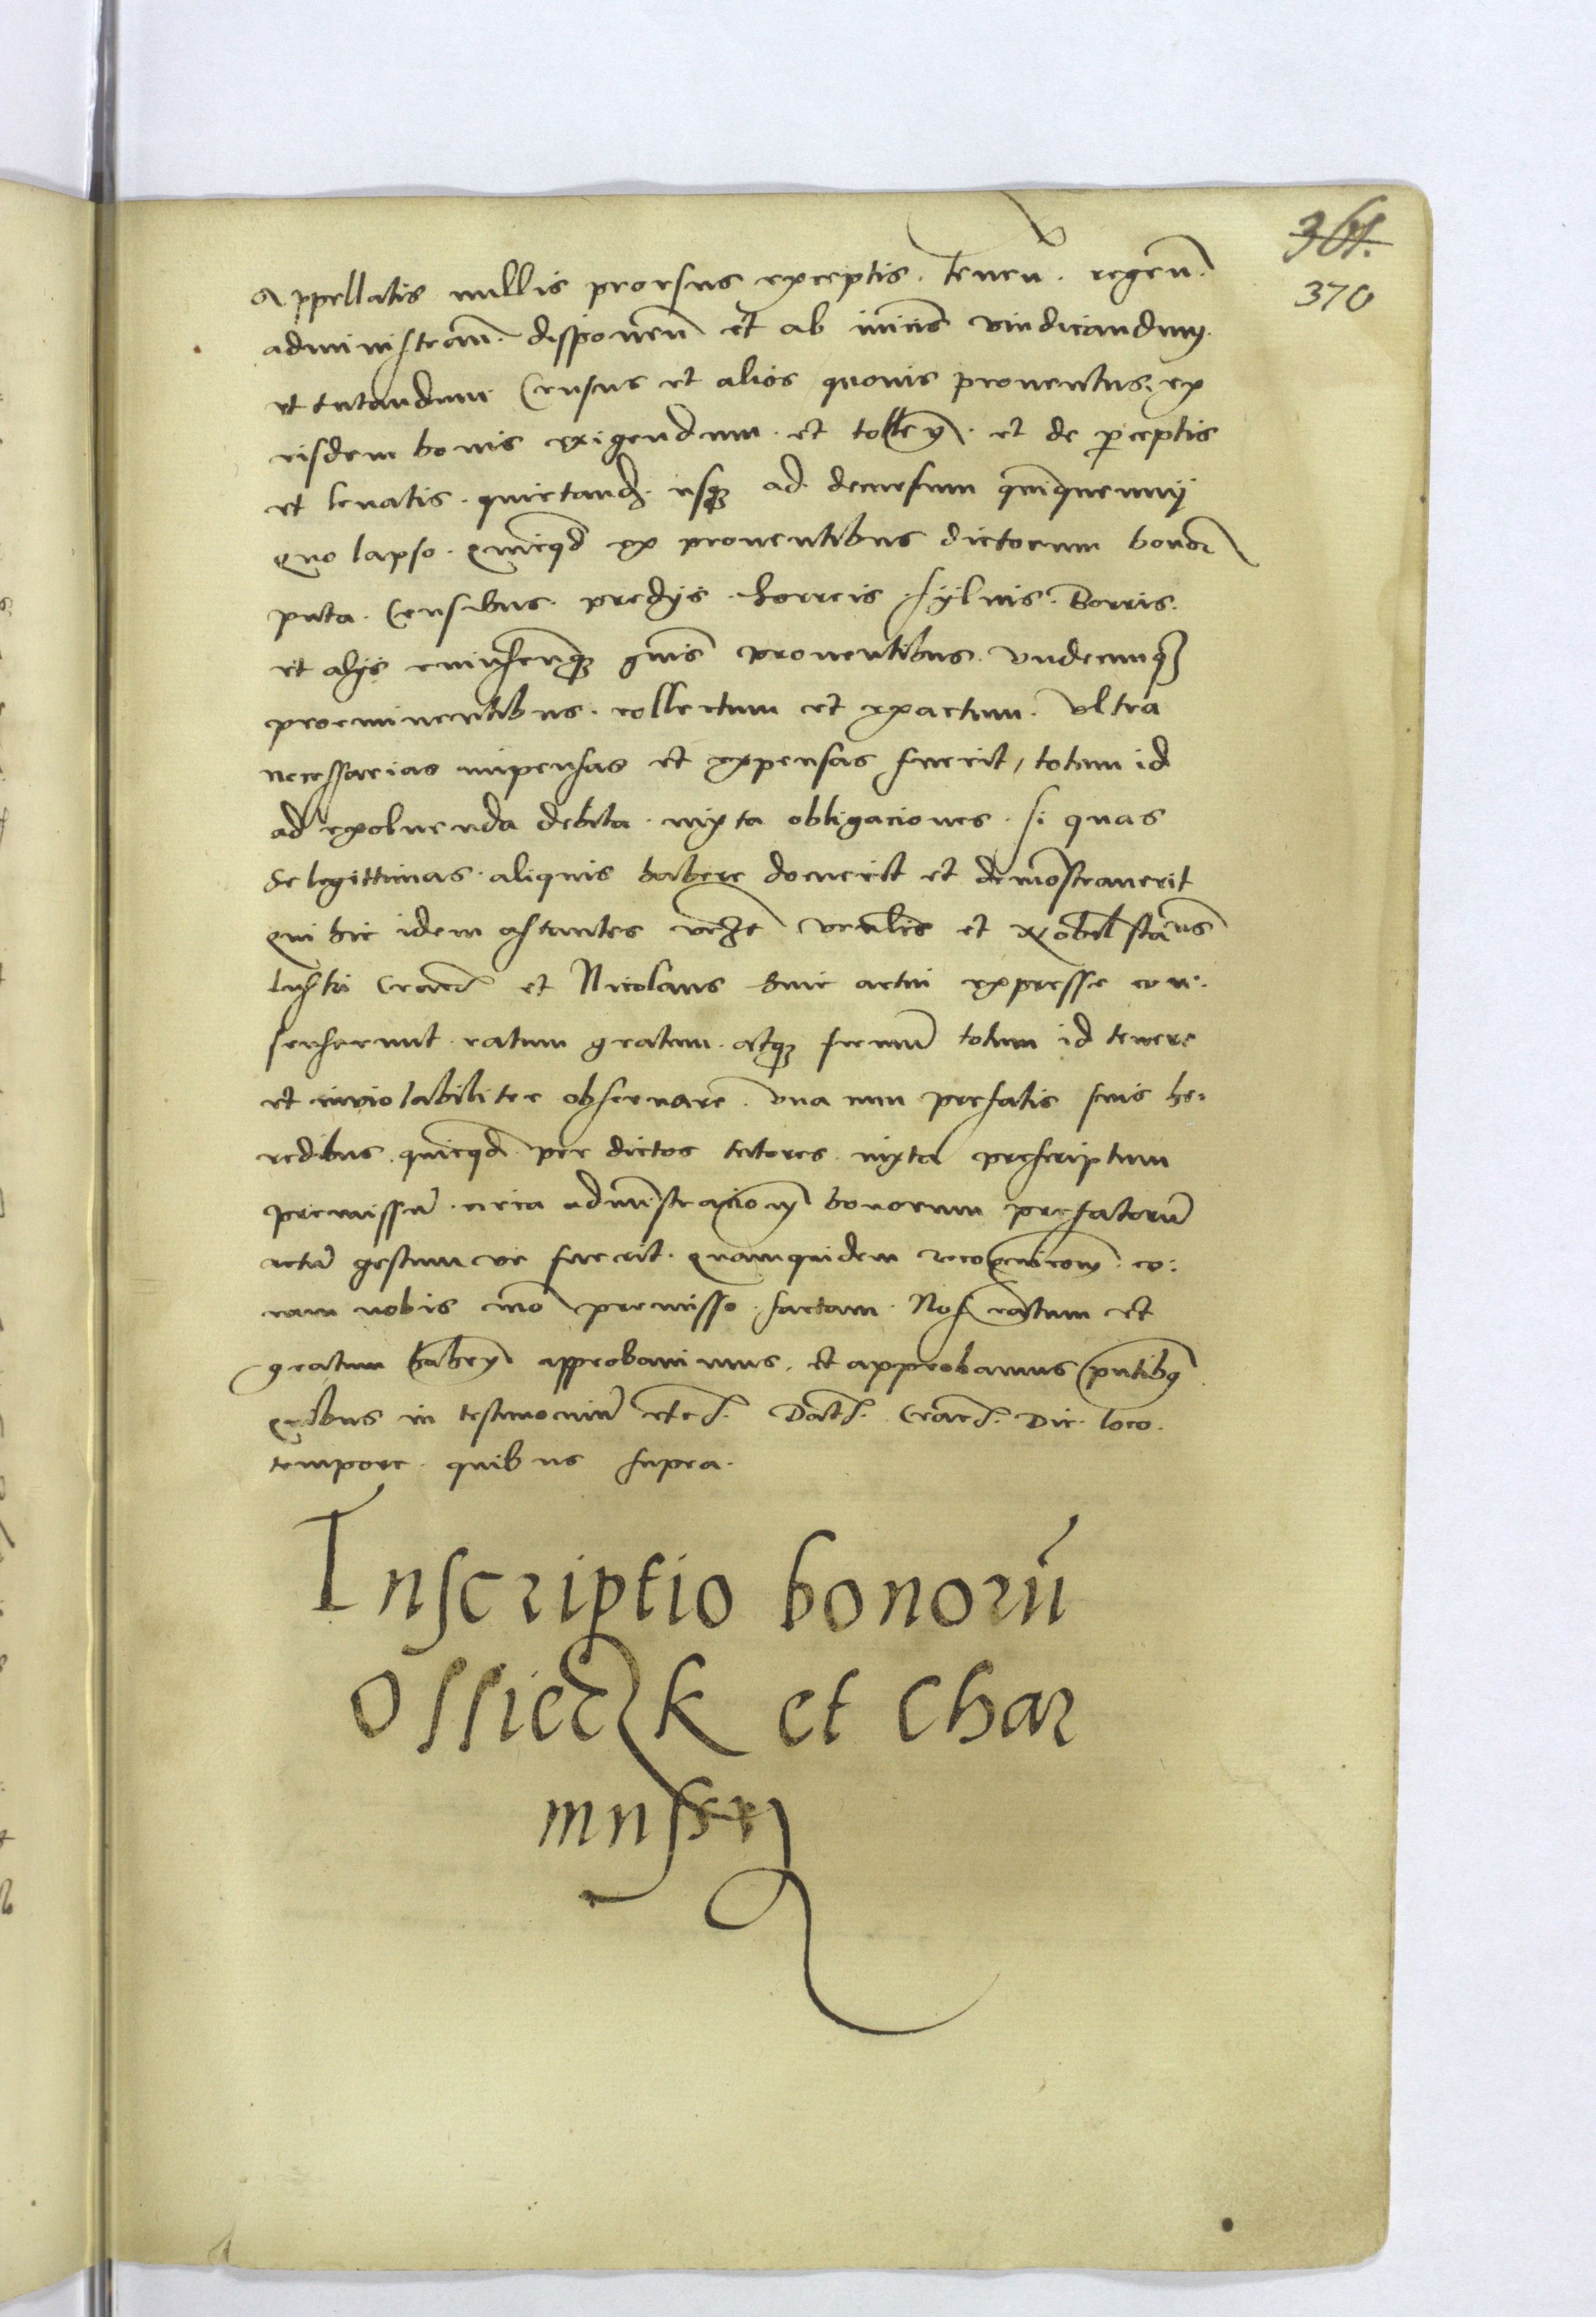 361.
370
Appellatis nullis prorsus exceptis. tenen̄. regen̄.
administran̄. disponen̄ et ab iniciis vindicandum.
et tutandum Census et alios quouis prouentus ex
eisdem bonis exigendum. et tollen̄. et de p̄ceptis
et leuatis. quietand. usq3 ad decursum quinquennij
quo lapso. quicq̄d ex prouentibus dictorum bonor̄
puta. Censibus. predijs. horreis. syluis. borris.
et alijs cuiuscunq3 gn̄is prouentibus. vndecunq3
proeminentibus. collectum et exactum. vltra
necessarias impensas et expensas fuerit, totum id
ad exoluenda debita. iuxta obligaciones. si quas
se legittimas. aliquis habere docuerit et demōstrauerit
Qui hic idem astantes et Nobil Stans
Crac et Nicolaus huic actui expresse con:
senserunt. ratum gratum. atq3 firmum̄ totum id tenere
et inuiolabiliter obseruare. vna cum prefatis suis he:
redibus. quicq̄d per dictos tutores. iuxta prescriptum
premissum̄. circa admīstracionem bonorum prefatorum̄
actum̄ gestum ve fuerit. quamquidem recognicionem. co:
ram nobis mō premisso. factam. Nos ratum et
gratum haben̄ approbauimus. et approbamus pn̄tibus
Quibus in testimonium̄ etc. Dat. Crac. Die. loco.
tempore. quibus supra.
Inscriptio bonorū
Ossieczk et Char